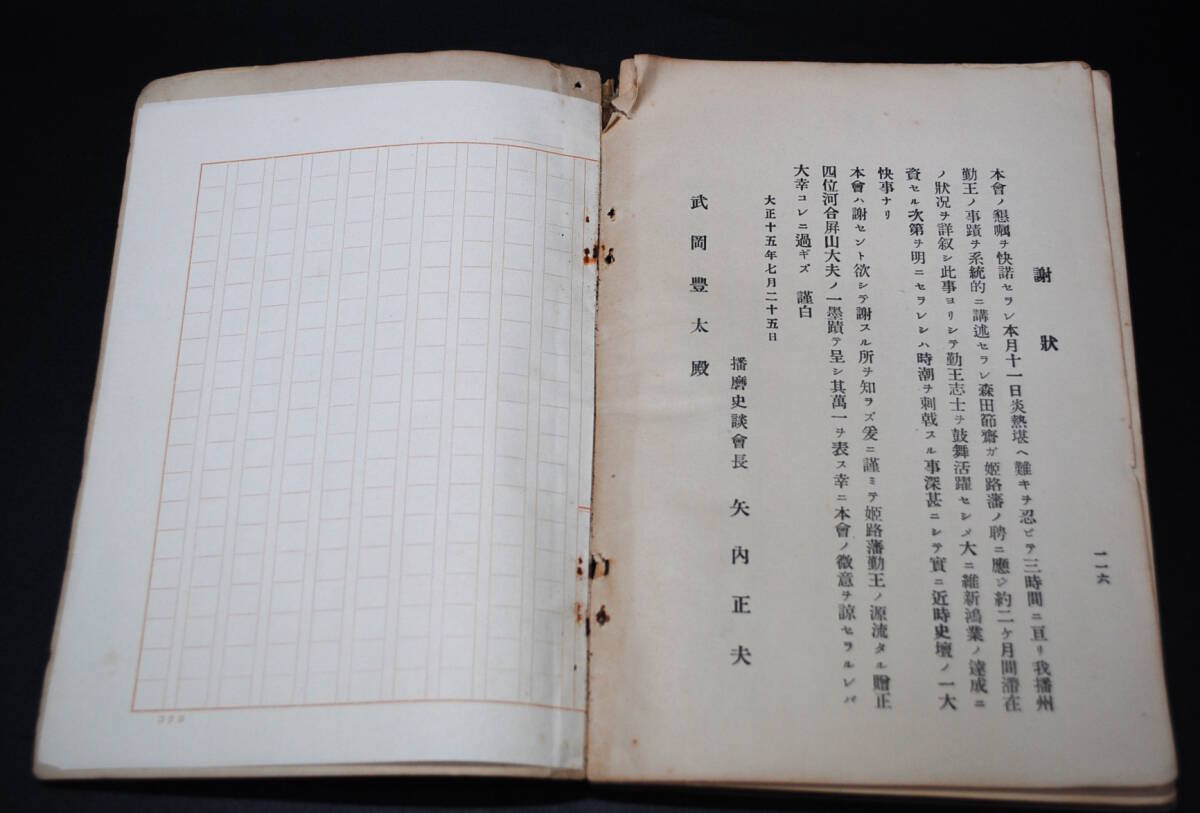 一一六
謝狀
本會ノ懇囑ヲ快諾セラレ本月十一日炎熱堪ヘ難キヲ忍ビテ三時間ニ亘リ我播州
勤王ノ事蹟ヲ系統的ニ講述セラレ森田節齋ガ姬路藩ノ聘ニ應ジ約二ケ月間滯在
ノ狀况ヲ詳叙シ此事ヨリシテ勤王志士ヲ鼓舞活躍セシメ大ニ維新鴻業ノ達成ニ
資セル次第ヲ明ニセラレシハ時潮ヲ刺戟スル事深甚ニシテ實ニ近時史壇ノ一大
快事ナリ
本會ハ謝セント欲シテ謝スル所ヲ知ラズ爰ニ謹ミテ姬路藩勤王ノ源流タル贈正
四位河合屛山大夫ノ一墨蹟ヲ呈シ其萬一ヲ表ス幸ニ本會ノ微意ヲ諒セラルレバ
大幸コレニ過ギズ 謹白
大正十五年七月二十五日
播磨史談會長 矢內正夫
武岡豐太殿